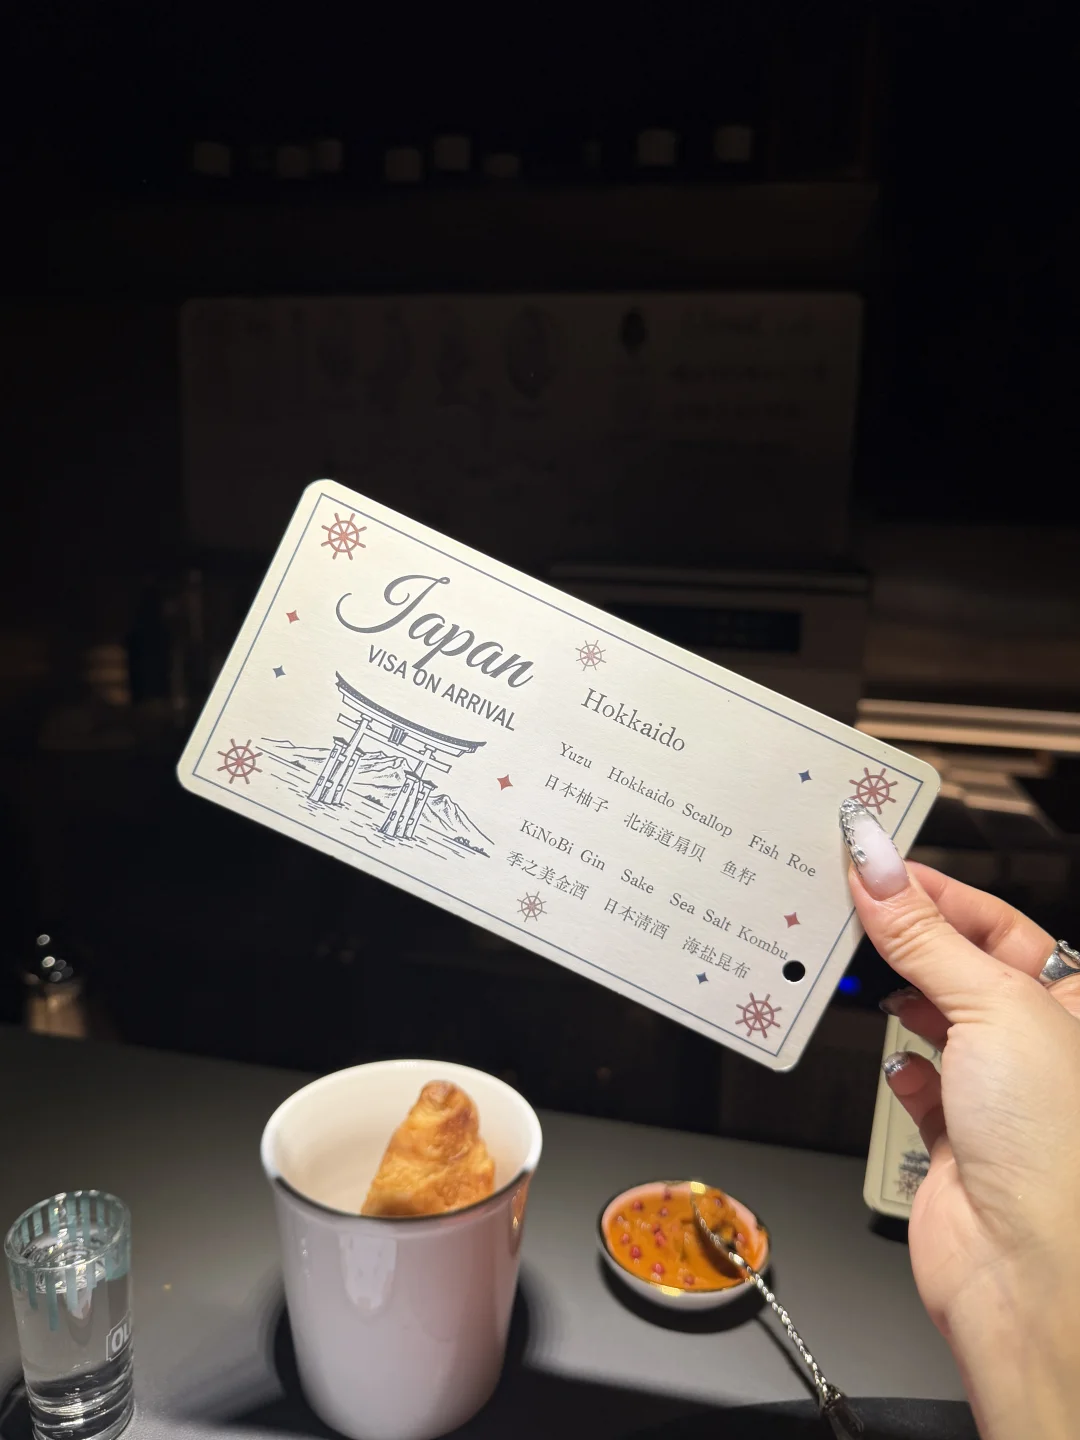 Japan
VISA ON ARRIVAL
Hokkaido
Yuzu Hokkaido Scallop Fish Roe
日本柚子 北海道扇贝 鱼籽
KiNoBi Gin Sake Sea Salt Kombu
季之美金酒 日本清酒 海盐昆布